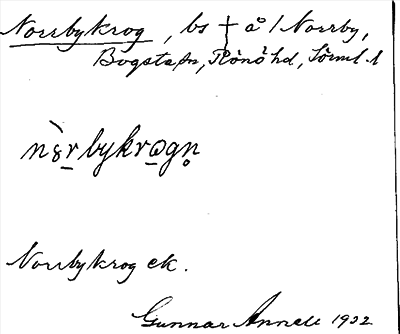 Norrbykrog, bs † å / Norrby,
Bogsta sn, Rönö hd, Sörml. l
nɛ̀r̲bykrɷgn̥
Norrbykrog ek.
Gunnar Annell 1932